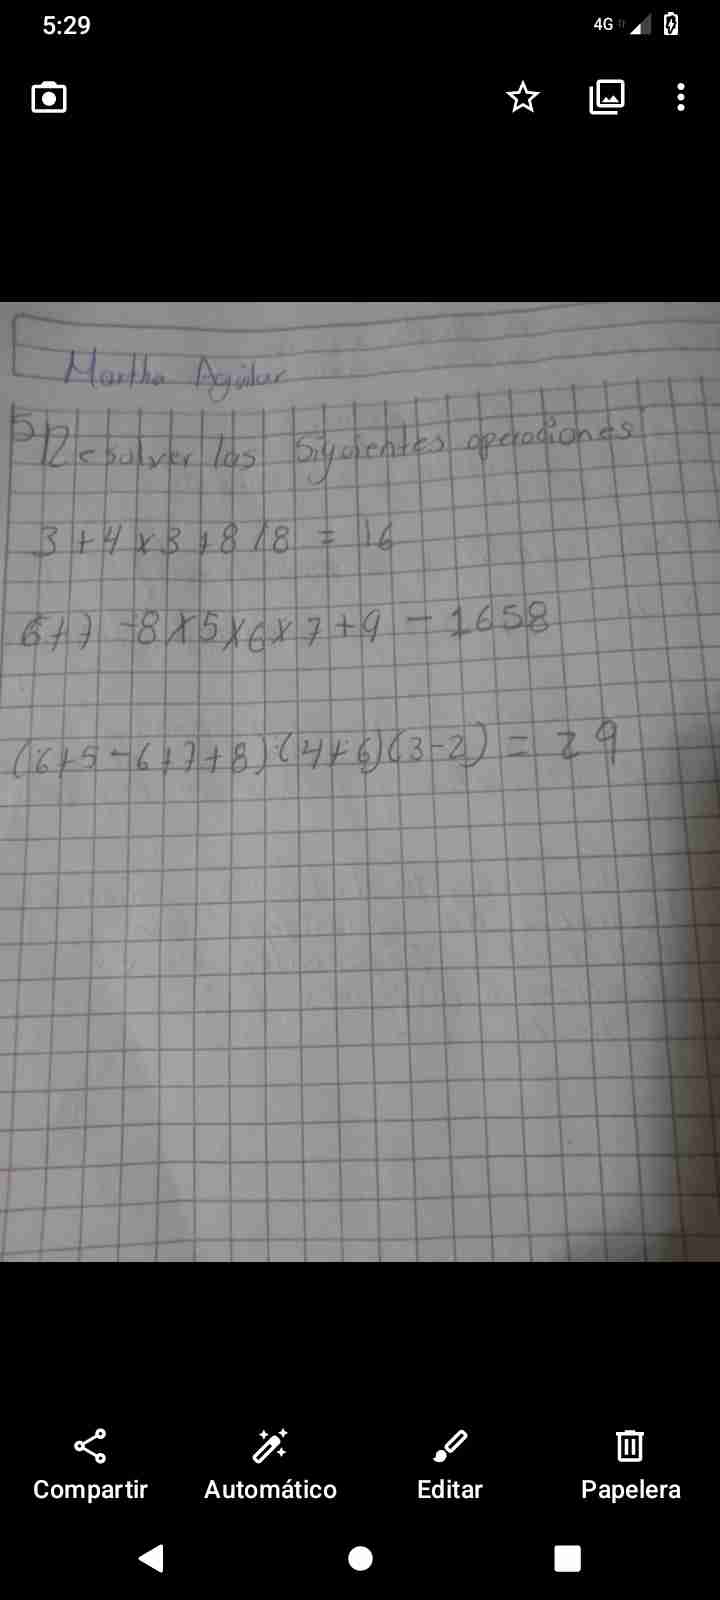 5:29
4G
Martha Aguilar
5) Resolver las siguientes operaciones
3 + 4 x 3 + 8 / 8 = 16
6 + 7 - 8 x 5 x 6 x 7 + 9 - 1658
(6 + 5 - 6 + 7 + 8) (4 + 6) (3 - 2) = 29
Compartir
Automático
Editar
Papelera